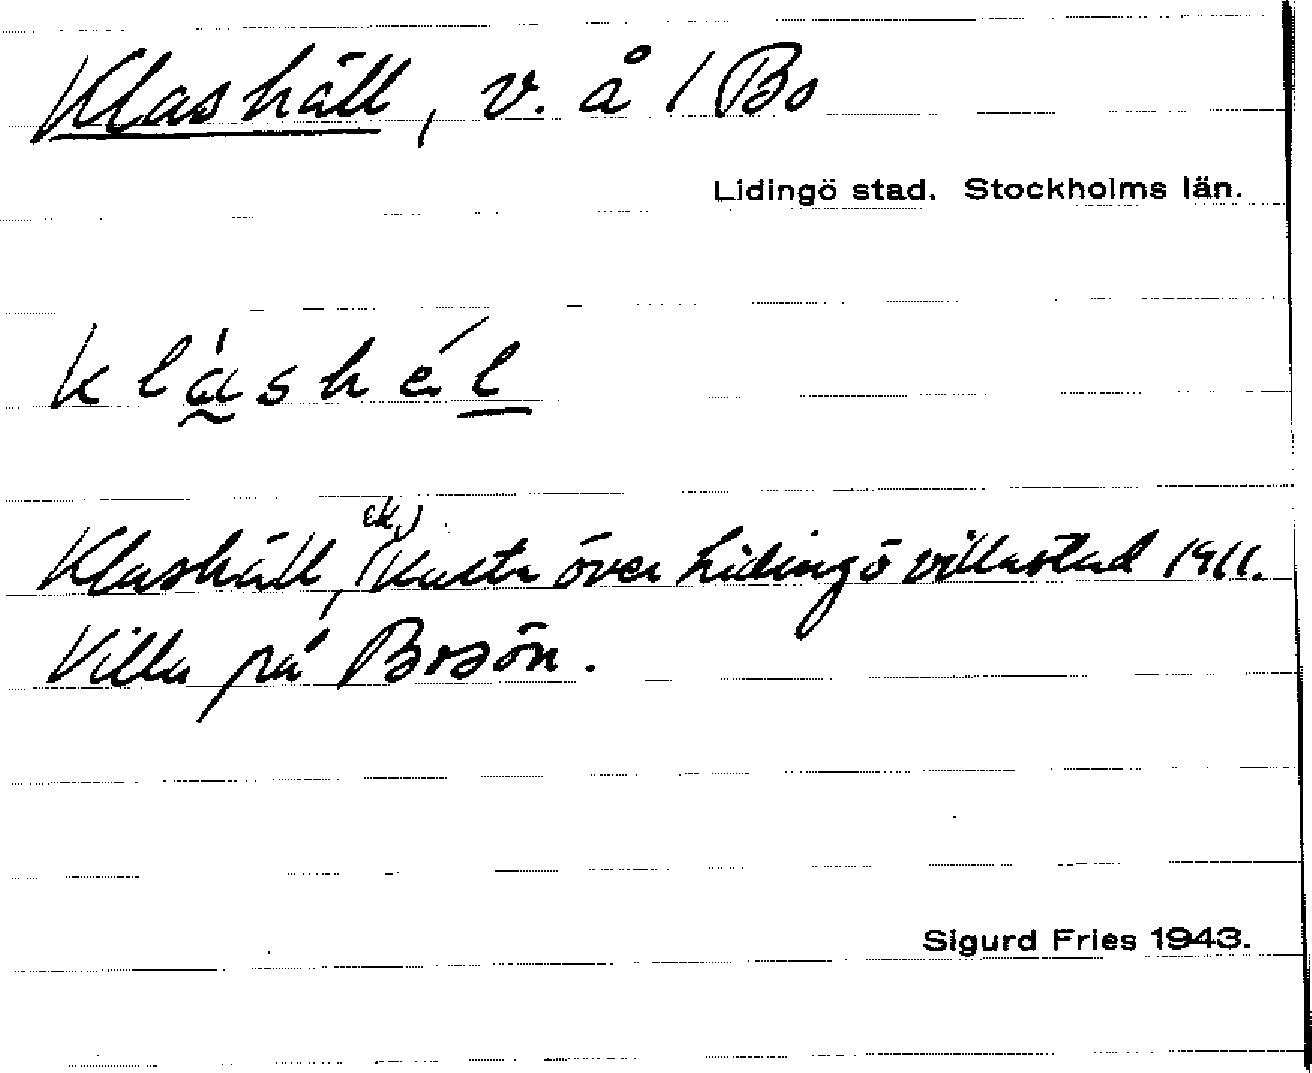 Klashäll, v. å / Bo
Lidingö stad. Stockholms län.
klàshél
Klashäll, (ek.) Karta över Lidingö villastad 1911.
Villa på Bosön.
Sigurd Fries 1943.